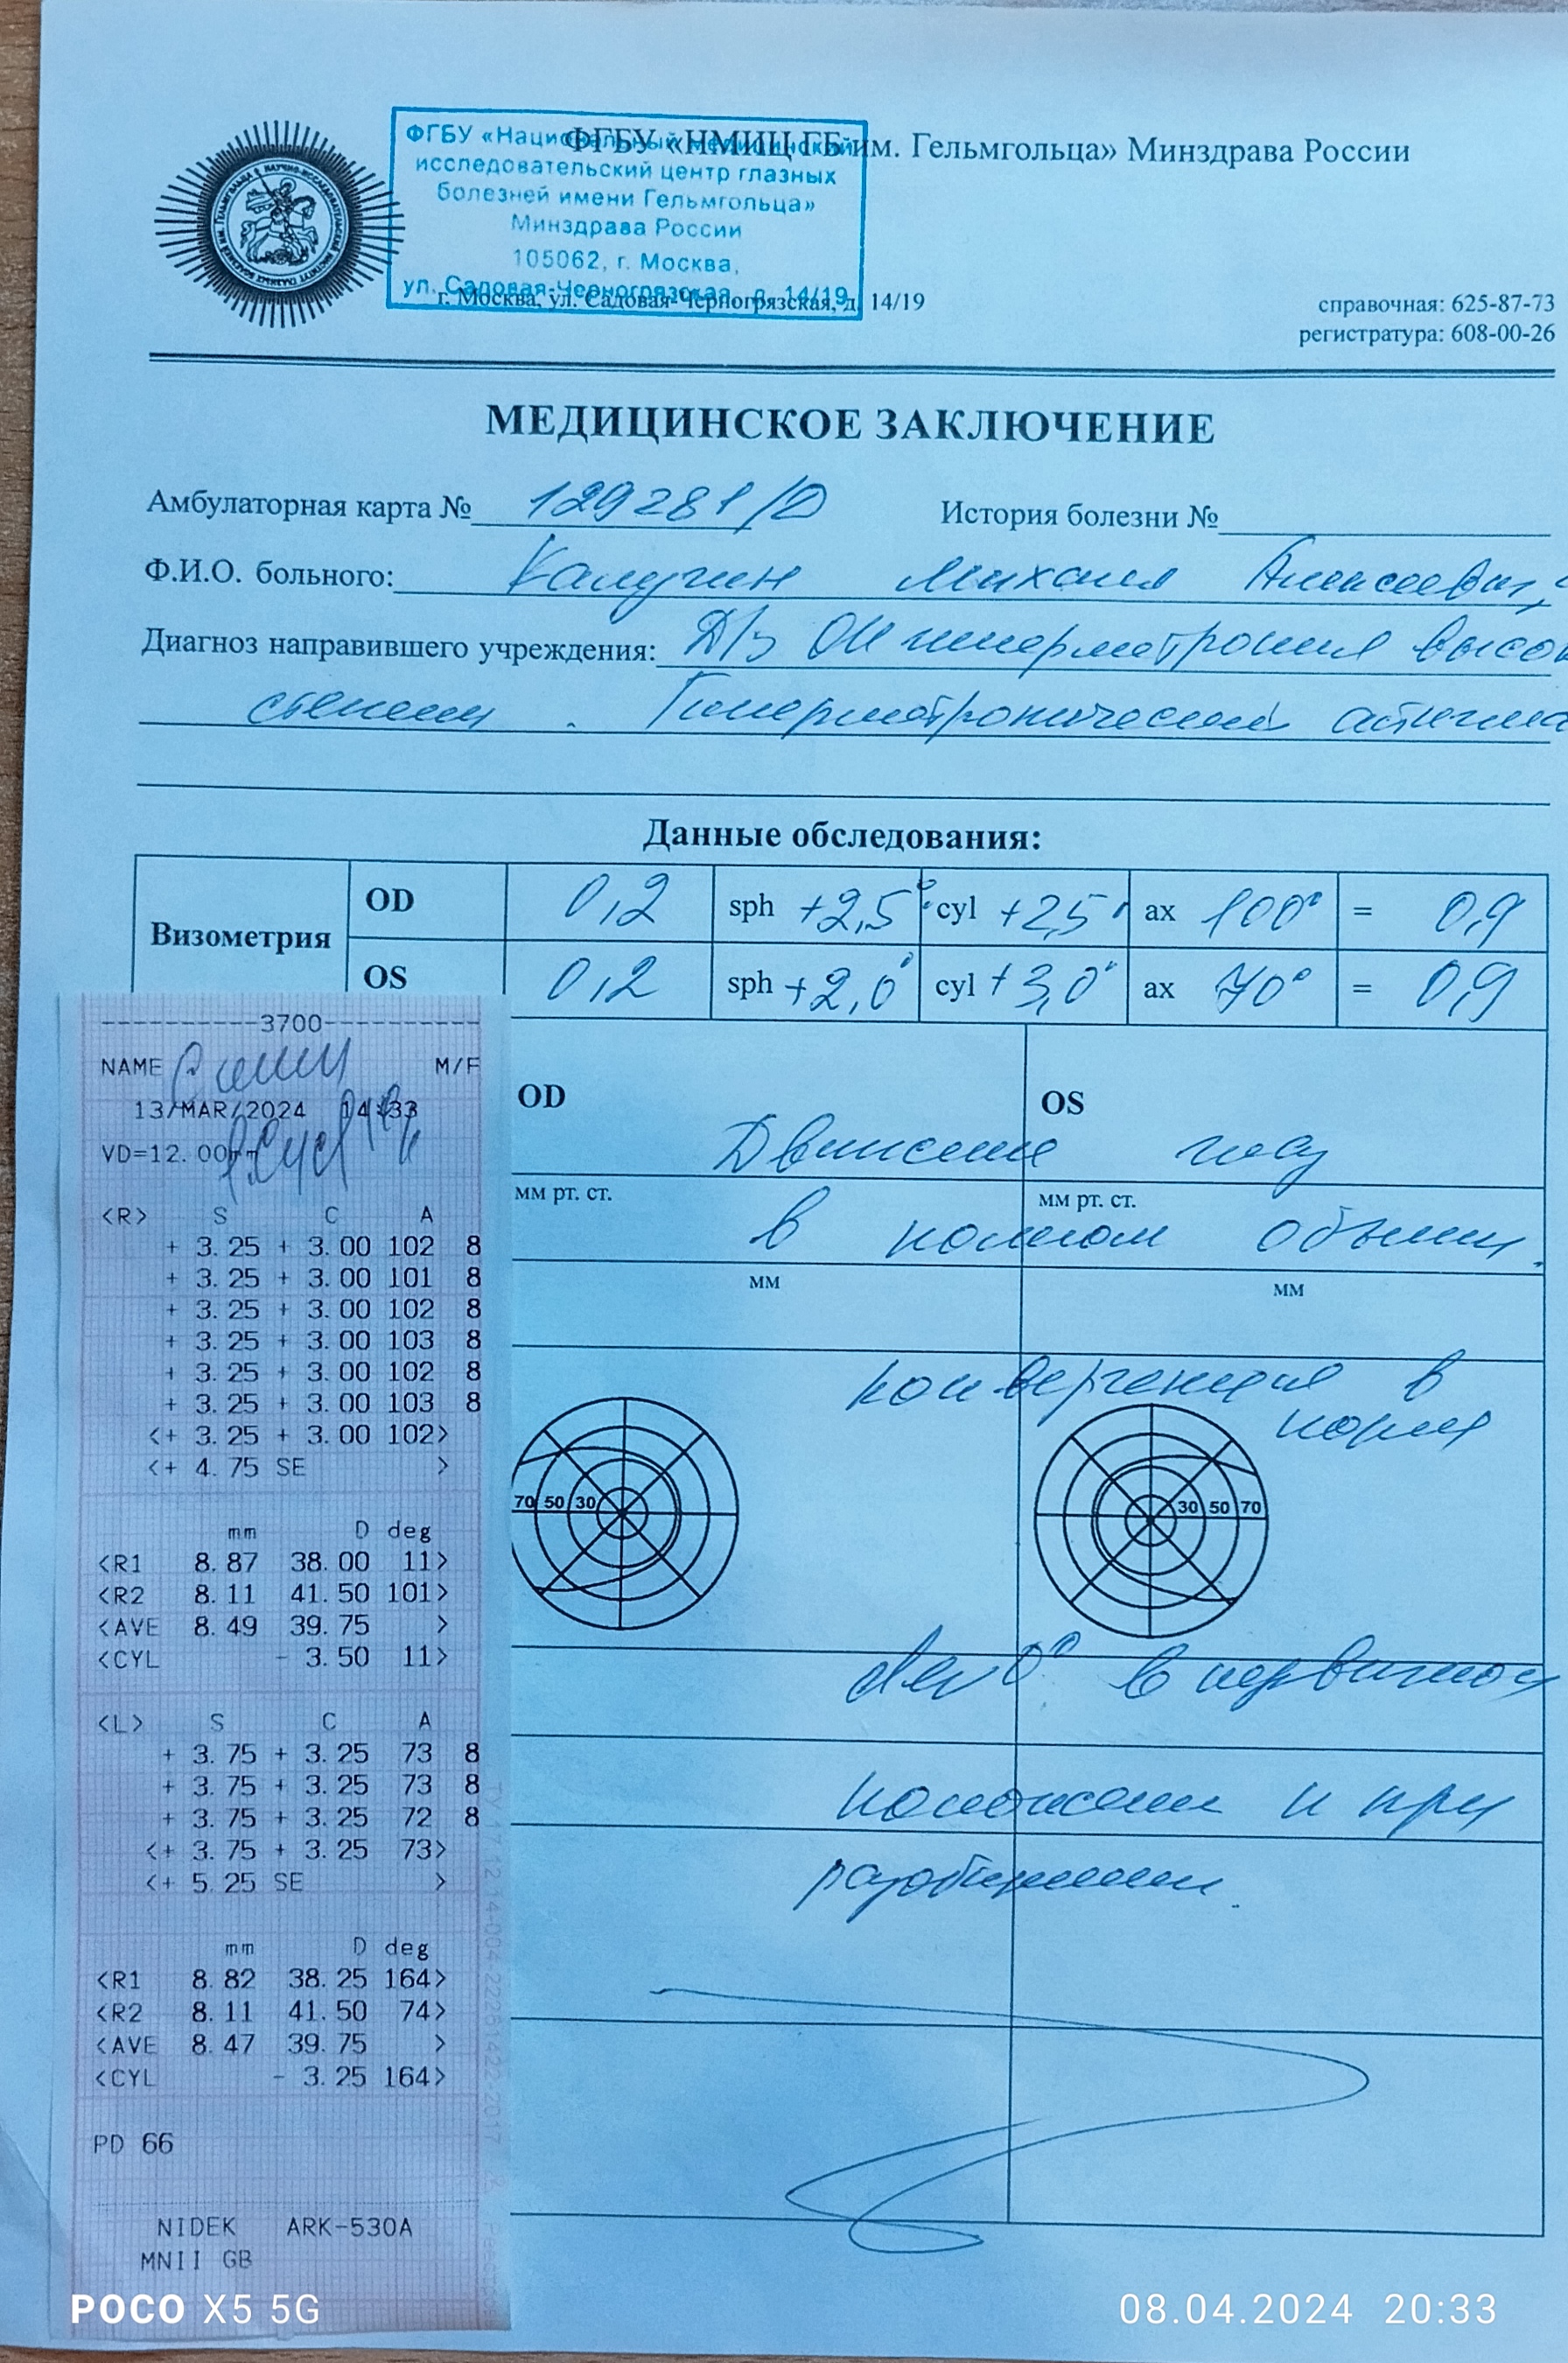 ФГБУ «НМИЦ ГБ им. Гельмгольца» Минздрава России
ФГБУ «Национальный медицинский
исследовательский центр глазных
болезней имени Гельмгольца»
Минздрава России
105062, г. Москва,
ул. Садовая-Черногрязская, д. 14/19
г. Москва, ул. Садовая-Черногрязская, д. 14/19
справочная: 625-87-73
регистратура: 608-00-26
МЕДИЦИНСКОЕ ЗАКЛЮЧЕНИЕ
Амбулаторная карта № 129281/D История болезни №
Ф.И.О. больного: Калугин Михаил Алексеевич,
Диагноз направившего учреждения: Д/з ОИ гиперметропия высо
степени. Гиперметропический астигма
Данные обследования:
Визометрия
OD 0,2 sph +2,5 cyl +2,5 ax 100° = 0,9
OS 0,2 sph +2,0 cyl +3,0 ax 70° = 0,9
OD OS
Движение глаз
мм рт. ст. мм рт. ст.
в полном объеме.
мм мм
конвергенция в
норме
70 50 30
30 50 70
dev 0° в первичном
положении и при
разобщении.
----------3700----------
NAME M/F
13/MAR/2024 14:33
VD=12.00mm
<R> S C A
+ 3.25 + 3.00 102 8
+ 3.25 + 3.00 101 8
+ 3.25 + 3.00 102 8
+ 3.25 + 3.00 103 8
+ 3.25 + 3.00 102 8
+ 3.25 + 3.00 103 8
<+ 3.25 + 3.00 102>
<+ 4.75 SE >
mm D deg
<R1 8.87 38.00 11>
<R2 8.11 41.50 101>
<AVE 8.49 39.75 >
<CYL - 3.50 11>
<L> S C A
+ 3.75 + 3.25 73 8
+ 3.75 + 3.25 73 8
+ 3.75 + 3.25 72 8
<+ 3.75 + 3.25 73>
<+ 5.25 SE >
mm D deg
<R1 8.82 38.25 164>
<R2 8.11 41.50 74>
<AVE 8.47 39.75 >
<CYL - 3.25 164>
PD 66
NIDEK ARK-530A
MNII GB
POCO X5 5G
08.04.2024 20:33